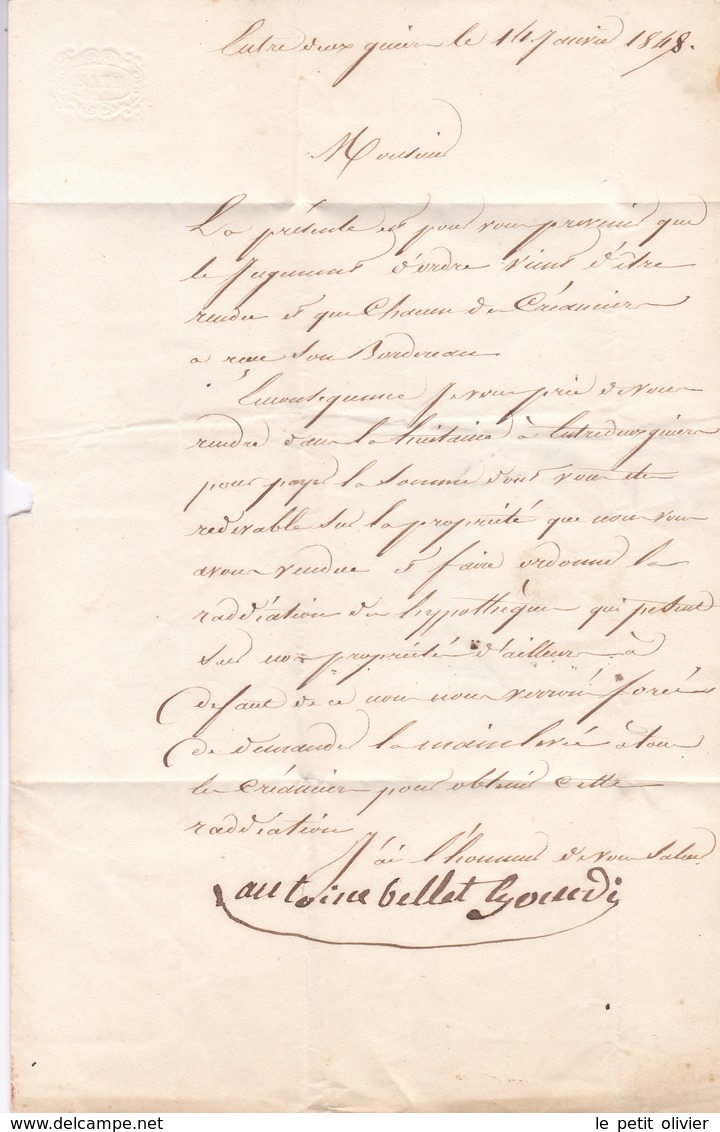 Entre deux guiers le 14 Janvier 1848.
Monsieur
La présente est pour vous prevenir que
le Jugement d'ordre vient d'être
rendu et que Chacun des Créanciers
a reçu son Bordereau
En conséquence Je vous prie de vous
rendre dans la huitaine à Entredeuxguiers
pour payer la somme dont vous etes
redevable sur la propriété que nous vous
avons vendue et faire ordonner la
raddiation des hypothèques qui pesent
sur nos propriétés d'ailleurs à
defaut de ce nous nous verrons forcés
de demander la main levée à tous
les Créanciers pour obtenir cette
raddiation
J'ai l'honneur de vous saluer
antoine bellet
le petit olivier